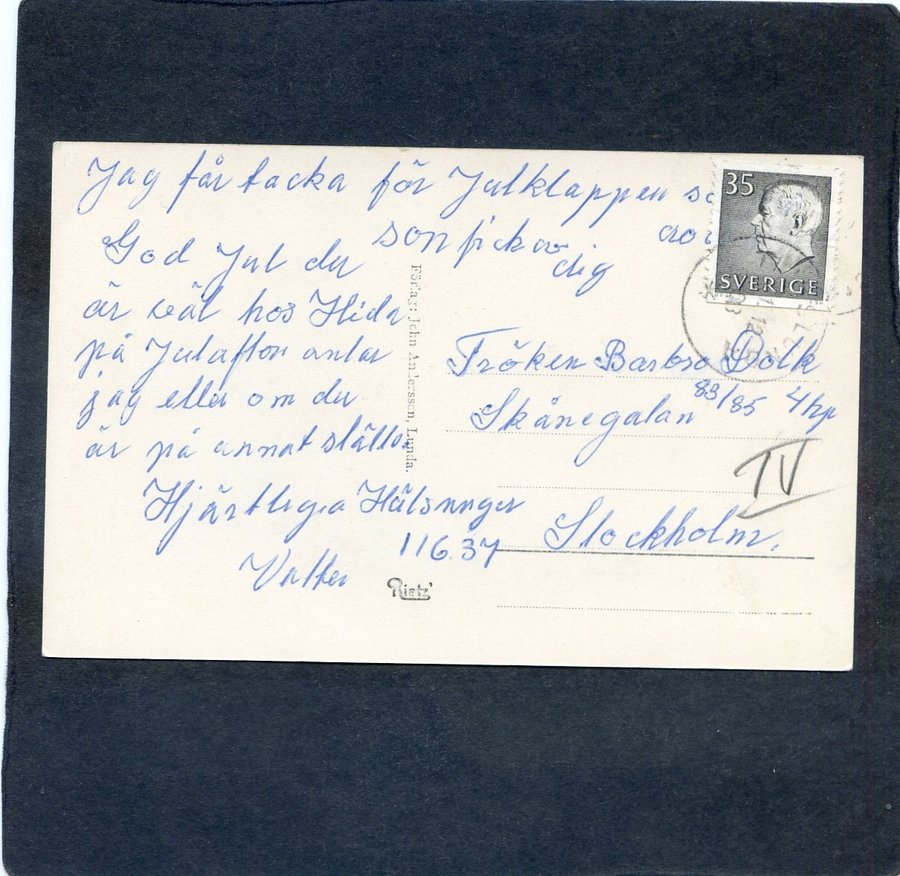 Jag får tacka för Julklappen
som jag fick av dig
God Jul du
är väl hos Hilda
på Julafton antar
jag eller om du
är på annat ställe.
Hjärtliga Hälsningar
Valter
35
SVERIGE
Förlag: John Andersson, Lunda.
Fröken Barbro Dolk
Skånegatan 83/85 4 hp
IV
116.37 Stockholm.
Rietz'